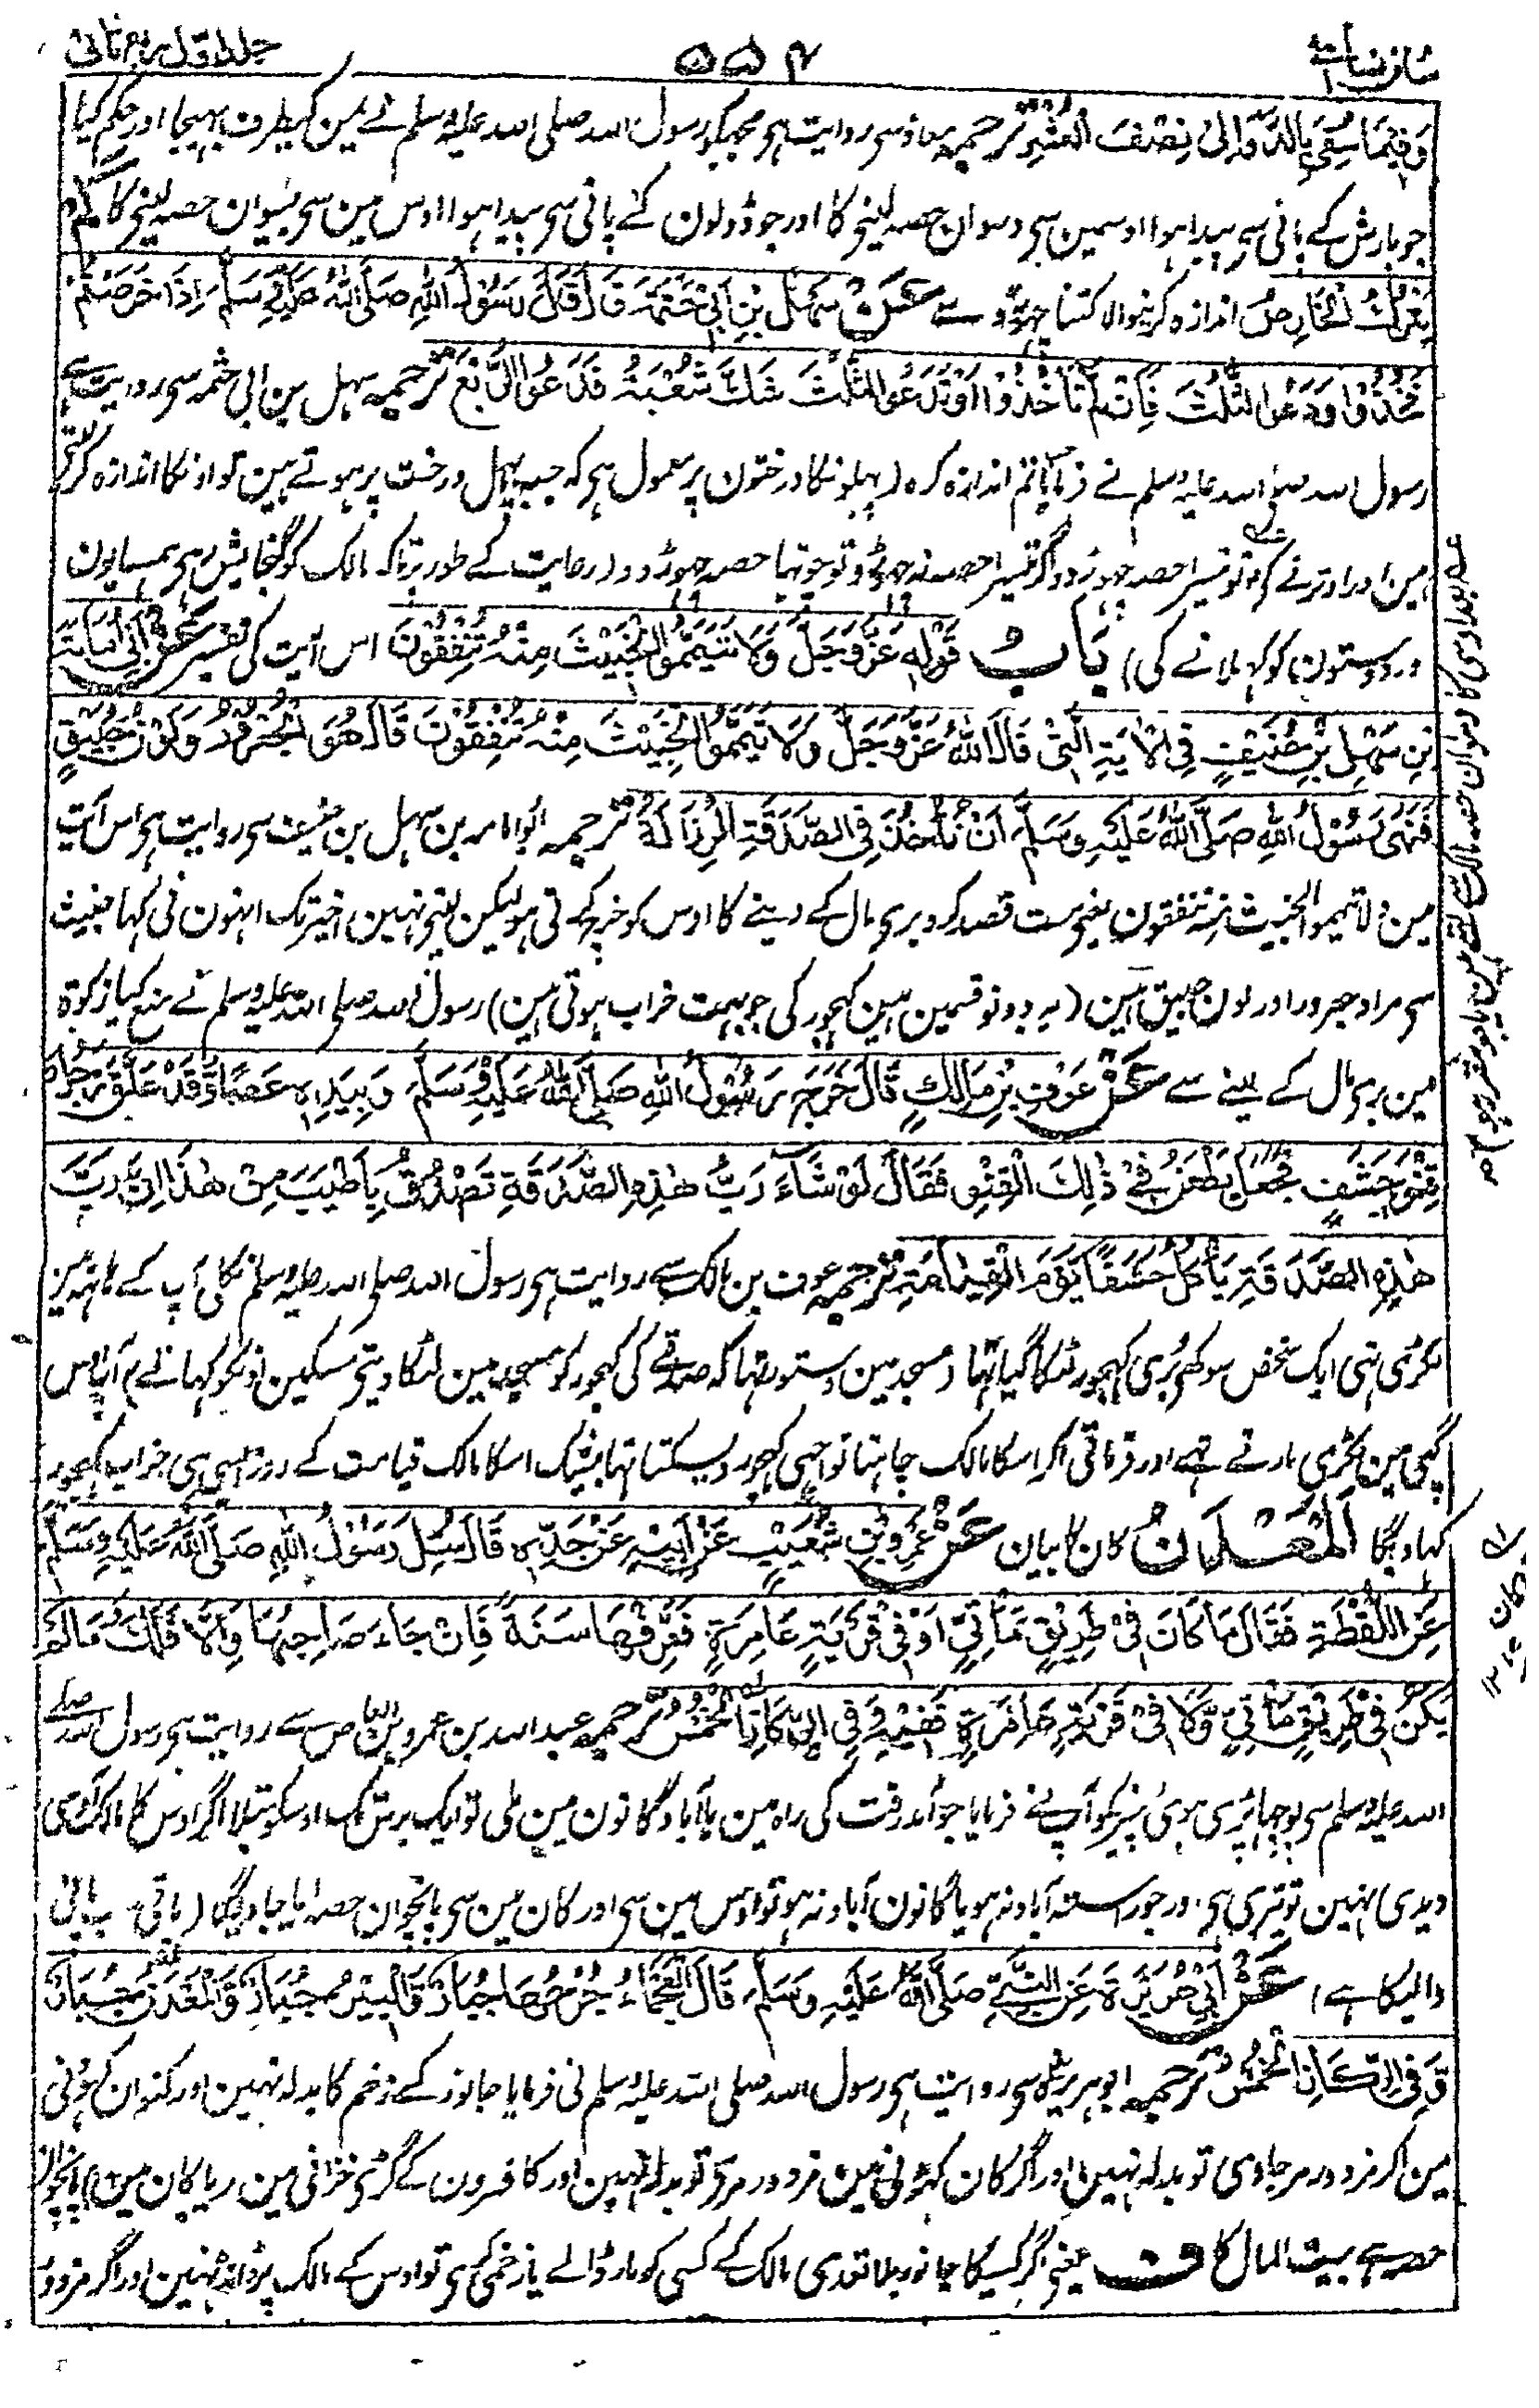 سنن نسائی
۵۵۴
جلد اول ربع ثانی
وَفِيْمَا سُقِيَ بِالدَّوَالِىْ نِصْفَ الْعُشْرِ ترجمہ معاذ سی روایت ہی مجہکو رسول اللہ صلی اللہ علیہ وسلم نے یمن کیطرف بہیجا اور حکم کیا
جو بارش کے پانی سی پیدا ہوا اوسمین سی دسوان حصہ لینی کا اور جو ڈولون کے پانی سی پیدا ہوا اوس مین سی بیسوان حصہ لینی کا كَمْ
يَتْرُكُ الْخَارِصُ اندازہ کرنیوالا کتنا چہوڑ دے عَنْ سَهْلِ بْنِ اَبِيْ حَثْمَةَ قَالَ قَالَ رَسُوْلُ اللهِ صَلَّى اللهُ عَلَيْهِ وَسَلَّمَ اِذَا خَرَصْتُمْ
فَخُذُوْا وَدَعُوا الثُّلُثَ فَاِنْ لَمْ تَأْخُذُوْا اَوْ تَدَعُوا الثُّلُثَ شَكَّ شُعْبَةُ فَدَعُوا الرُّبُعَ ترجمہ سہل بن ابی حثمہ سی روایت ہے
رسول اللہ صلی اللہ علیہ وسلم نے فرمایا تم اندازہ کرو (پہلونکا درختون پر معمول ہی کہ جب پہل درخت پر ہوتے ہین تو اونکا اندازہ کرلیتی
ہین اور اوترنے کے تو تیسرا حصہ چہوڑ دو اگر تیسرا حصہ نہ چہوڑو تو چوتہا حصہ چہوڑ دو (رعایت کے طور پر تاکہ مالک کو گنجایش رہی ہمسایون
اور دوستون کو کہلانے کی) بَابُ قَوْلِهٖ عَزَّ وَجَلَّ وَلَا تَيَمَّمُوا الْخَبِيْثَ مِنْهُ تُنْفِقُوْنَ اس آیت کی تفسیر عَنْ اَبِيْ اُمَامَةَ
بْنِ سَهْلِ بْنِ حُنَيْفٍ فِي الْاٰيَةِ الَّتِيْ قَالَ اللهُ عَزَّ وَجَلَّ وَلَا تَيَمَّمُوا الْخَبِيْثَ مِنْهُ تُنْفِقُوْنَ قَالَ هُوَ الْجُعْرُوْرُ وَلَوْنُ حُبَيْقٍ
فَنَهٰى رَسُوْلُ اللهِ صَلَّى اللهُ عَلَيْهِ وَسَلَّمَ اَنْ تُؤْخَذَ فِي الصَّدَقَةِ الرُّذَالَةُ ترجمہ ابو امامہ بن سہل بن حنیف سی روایت ہی اس آیت
مین ولا تیمموا الخبیث منہ تنفقون یعنی مت قصد کرو بری مال کے دینے کا اوس کو خرچ کرتی ہو لیکن لیتی نہین اخیر تک انہون نی کہا خبیث
سی مراد جعرور اور لون حبیق ہین (یہ دونو قسمین ہین کہجور کی جو بہت خراب ہوتی ہین) رسول اللہ صلی اللہ علیہ وسلم نے منع کیا زکوة
مین بری مال کے لینے سے عَنْ عَوْفِ بْنِ مَالِكٍ قَالَ خَرَجَ رَسُوْلُ اللهِ صَلَّى اللهُ عَلَيْهِ وَسَلَّمَ وَبِيَدِهٖ عَصًا وَقَدْ عَلَّقَ رَجُلٌ
قِنْوَ حَشَفٍ فَجَعَلَ يَطْعَنُ فِيْ ذٰلِكَ الْقِنْوِ فَقَالَ لَوْ شَاءَ رَبُّ هٰذِهِ الصَّدَقَةِ تَصَدَّقَ بِاَطْيَبَ مِنْ هٰذَا اِنَّ رَبَّ
هٰذِهِ الصَّدَقَةِ يَأْكُلُ حَشَفًا يَوْمَ الْقِيٰمَةِ ترجمہ عوف بن مالک سے روایت ہی رسول اللہ صلی اللہ علیہ وسلم نکلی آپ کے ہاتہہ مین
لکڑی تہی ایک شخص سوکہی بُری کہجور لٹکا گیا تہا (مسجد مین دستور تہا کہ صدقے کی کہجور کو مسجد مین لٹکا دیتی مسکین اونکو کہالے) آپ اوس
گچہی مین لکڑی مارتے تہے اور فرماتی اگر اسکا مالک چاہتا تو اچہی کہجور دیسکتا تہا بیشک اسکا مالک قیامت کے روز ایسی ہی خراب کہجور
کہاویگا اَلْمَعْدَنُ کان کا بیان عَنْ عَمْرِو بْنِ شُعَيْبٍ عَنْ اَبِيْهِ عَنْ جَدِّهٖ قَالَ سُئِلَ رَسُوْلُ اللهِ صَلَّى اللهُ عَلَيْهِ وَسَلَّمَ
عَنِ اللُّقْطَةِ فَقَالَ مَا كَانَ فِيْ طَرِيْقٍ مَأْتِيٍّ اَوْ فِيْ قَرْيَةٍ عَامِرَةٍ فَعَرِّفْهَا سَنَةً فَاِنْ جَاءَ صَاحِبُهَا وَاِلَّا فَلَكَ وَمَا لَمْ
يَكُنْ فِيْ طَرِيْقٍ مَأْتِيٍّ وَلَا فِيْ قَرْيَةٍ عَامِرَةٍ فَفِيْهِ وَفِي الرِّكَازِ الْخُمُسُ ترجمہ عبداللہ بن عمرو بن العاص سے روایت ہی رسول اللہ صلی
اللہ علیہ وسلم سی پوچہا پڑی ہوئی چیز کو آپ نے فرمایا جو آمدرفت کی راہ مین یا آباد گانون مین ملی تو ایک برس تک اوسکو بتلا اگر اوس کا مالک آوی
دیدی نہین تو تیری ہی اور جو راستہ آباد نہ ہو یا گانون آباد نہ ہو تو اوس مین سی اور کان مین سی پانچوان حصہ لیا جاویگا (باقی سب پانی
والیکا ہے) عَنْ اَبِيْ هُرَيْرَةَ عَنِ النَّبِيِّ صَلَّى اللهُ عَلَيْهِ وَسَلَّمَ قَالَ الْعَجْمَاءُ جُرْحُهَا جُبَارٌ وَالْبِئْرُ جُبَارٌ وَالْمَعْدَنُ جُبَارٌ
وَفِي الرِّكَازِ الْخُمُسُ ترجمہ ابو ہریرہ سی روایت ہی رسول اللہ صلی اللہ علیہ وسلم نی فرمایا جانور کے زخم کا بدلہ نہین اور کنوان کہودنی
مین اگر مزدور مرجاوی تو بدلہ نہین اور اگر کان کہودنی مین مزدور مری تو بدلہ نہین اور کافرون کے گڑی خزانی مین (یا کان مین) پانچوان
حصہ ہے بیت المال کا ف یعنی اگر کسیکا جانور بلا تعدی مالک کے کسی کو مار ڈالے یا زخمی کری تو اوس کے مالک پر دانڈ نہین اور اگر مزدور